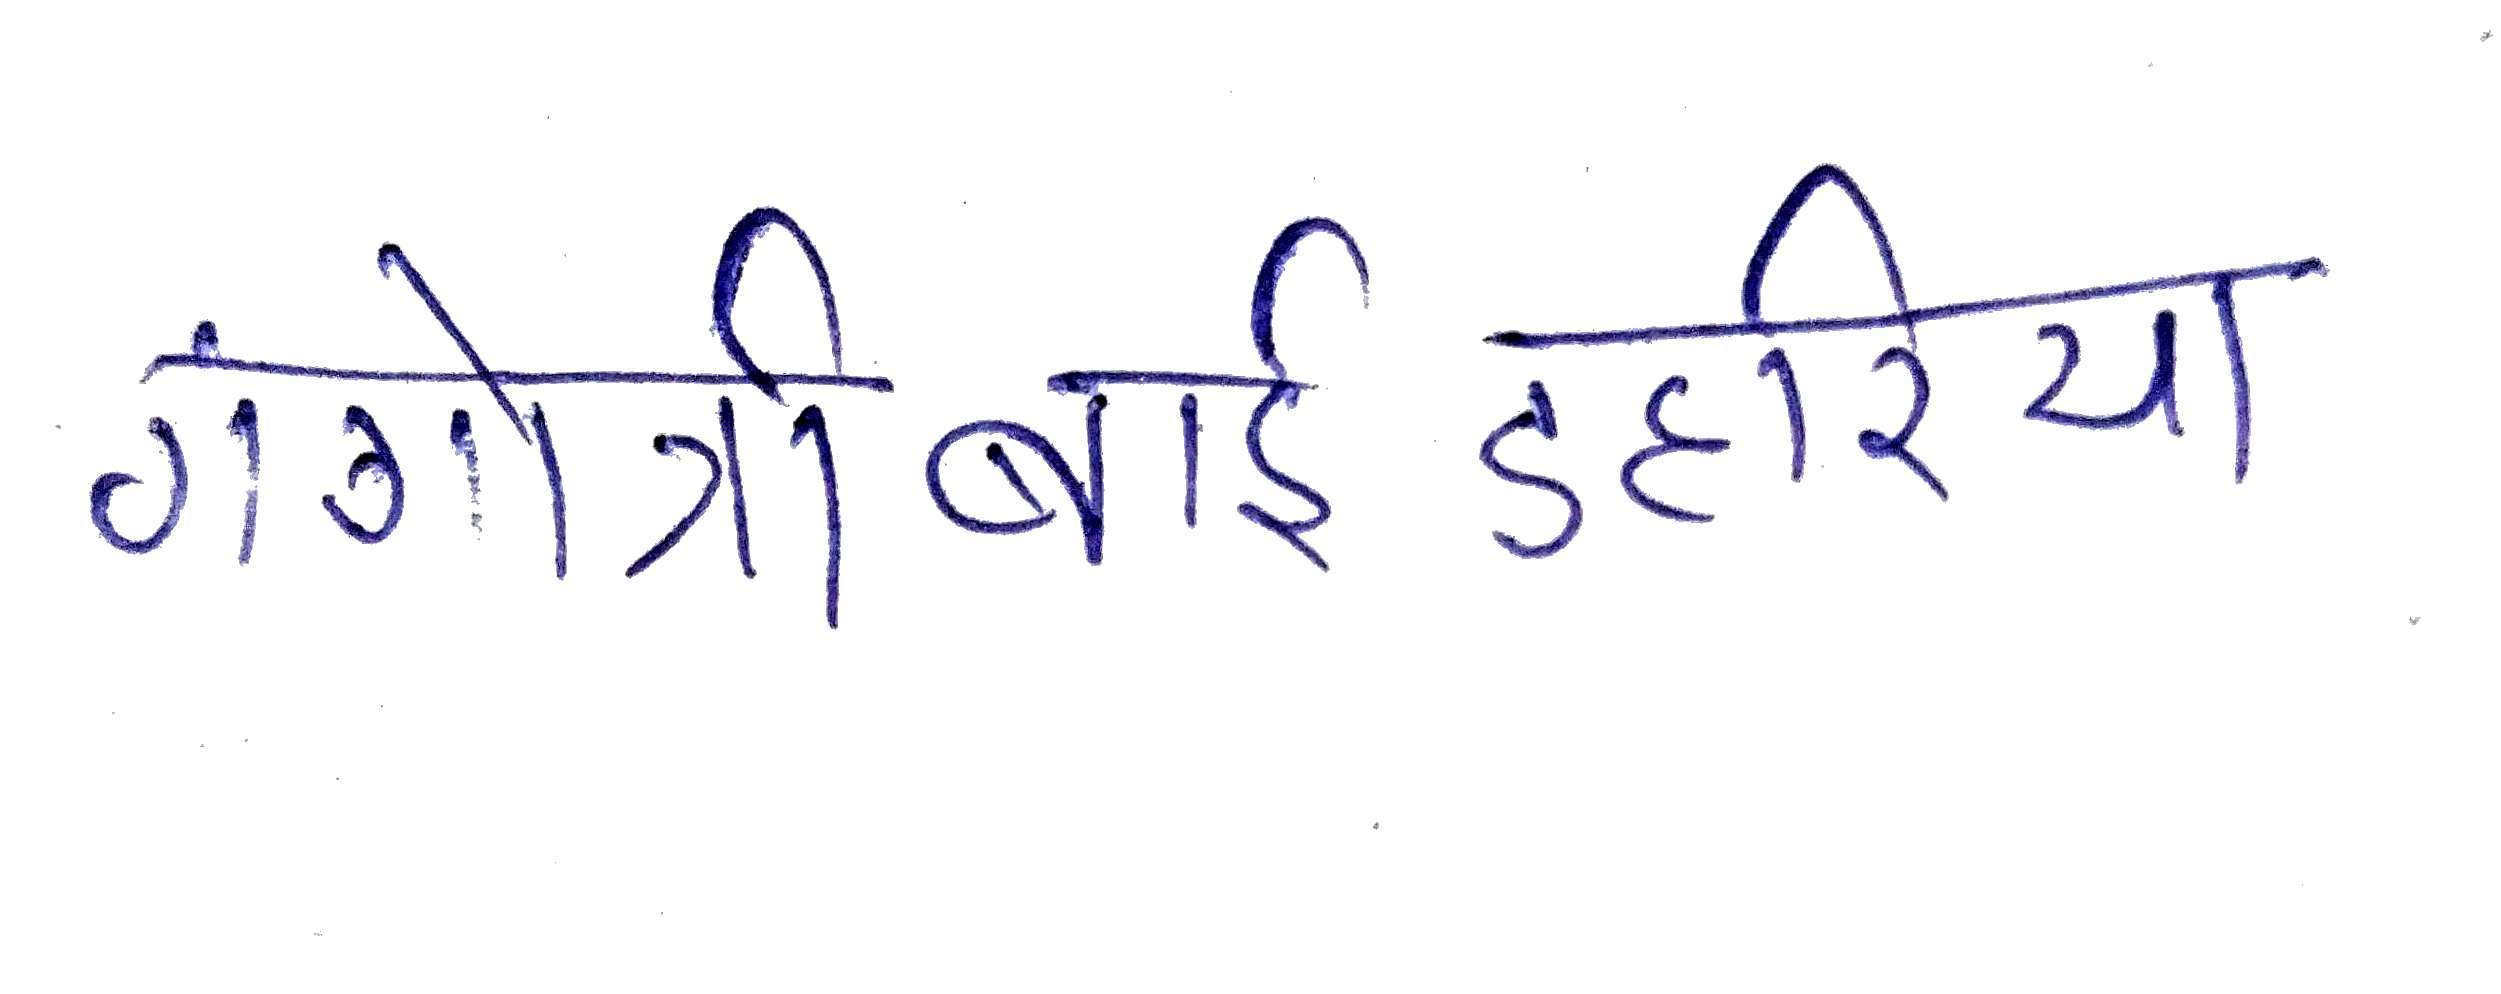 गंगोत्री बाई डहरिया